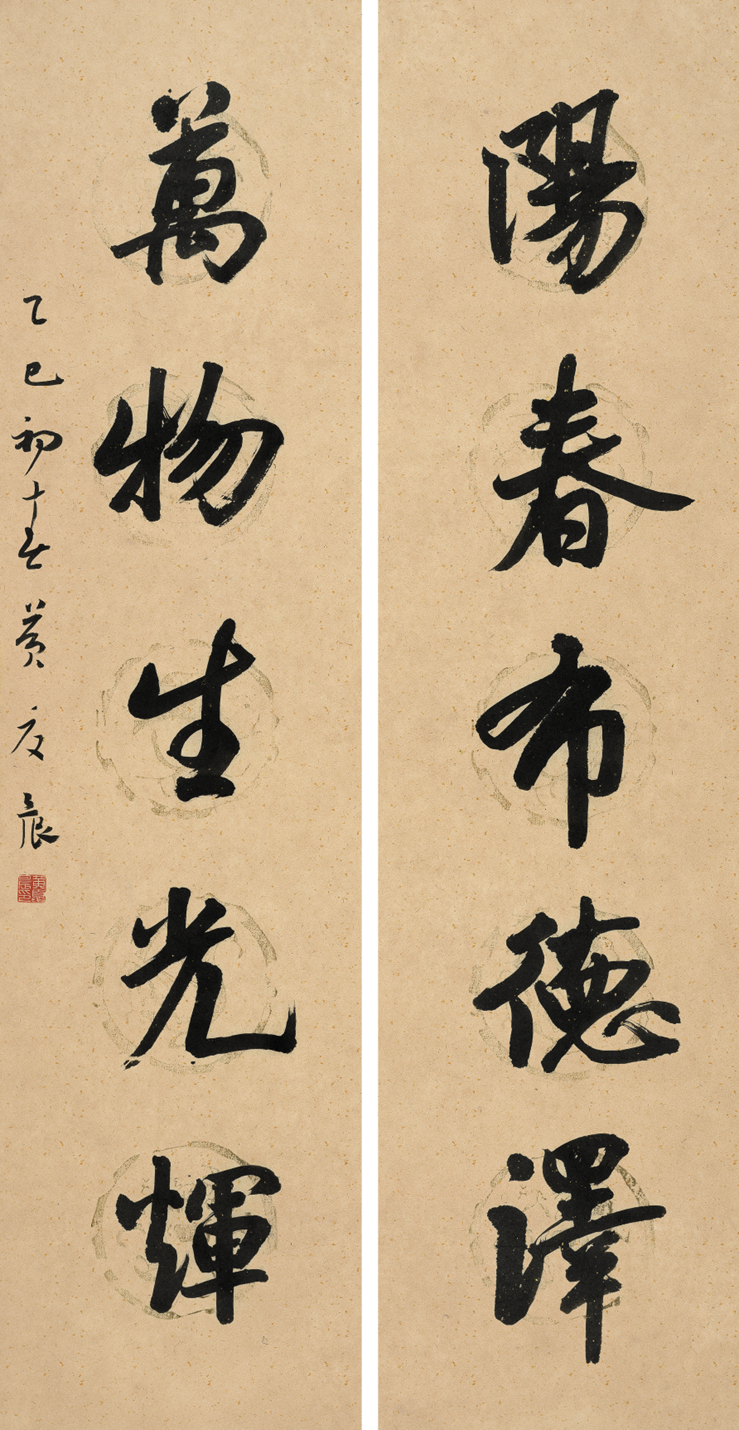 陽春布德澤
萬物生光輝
乙巳初十春黃友